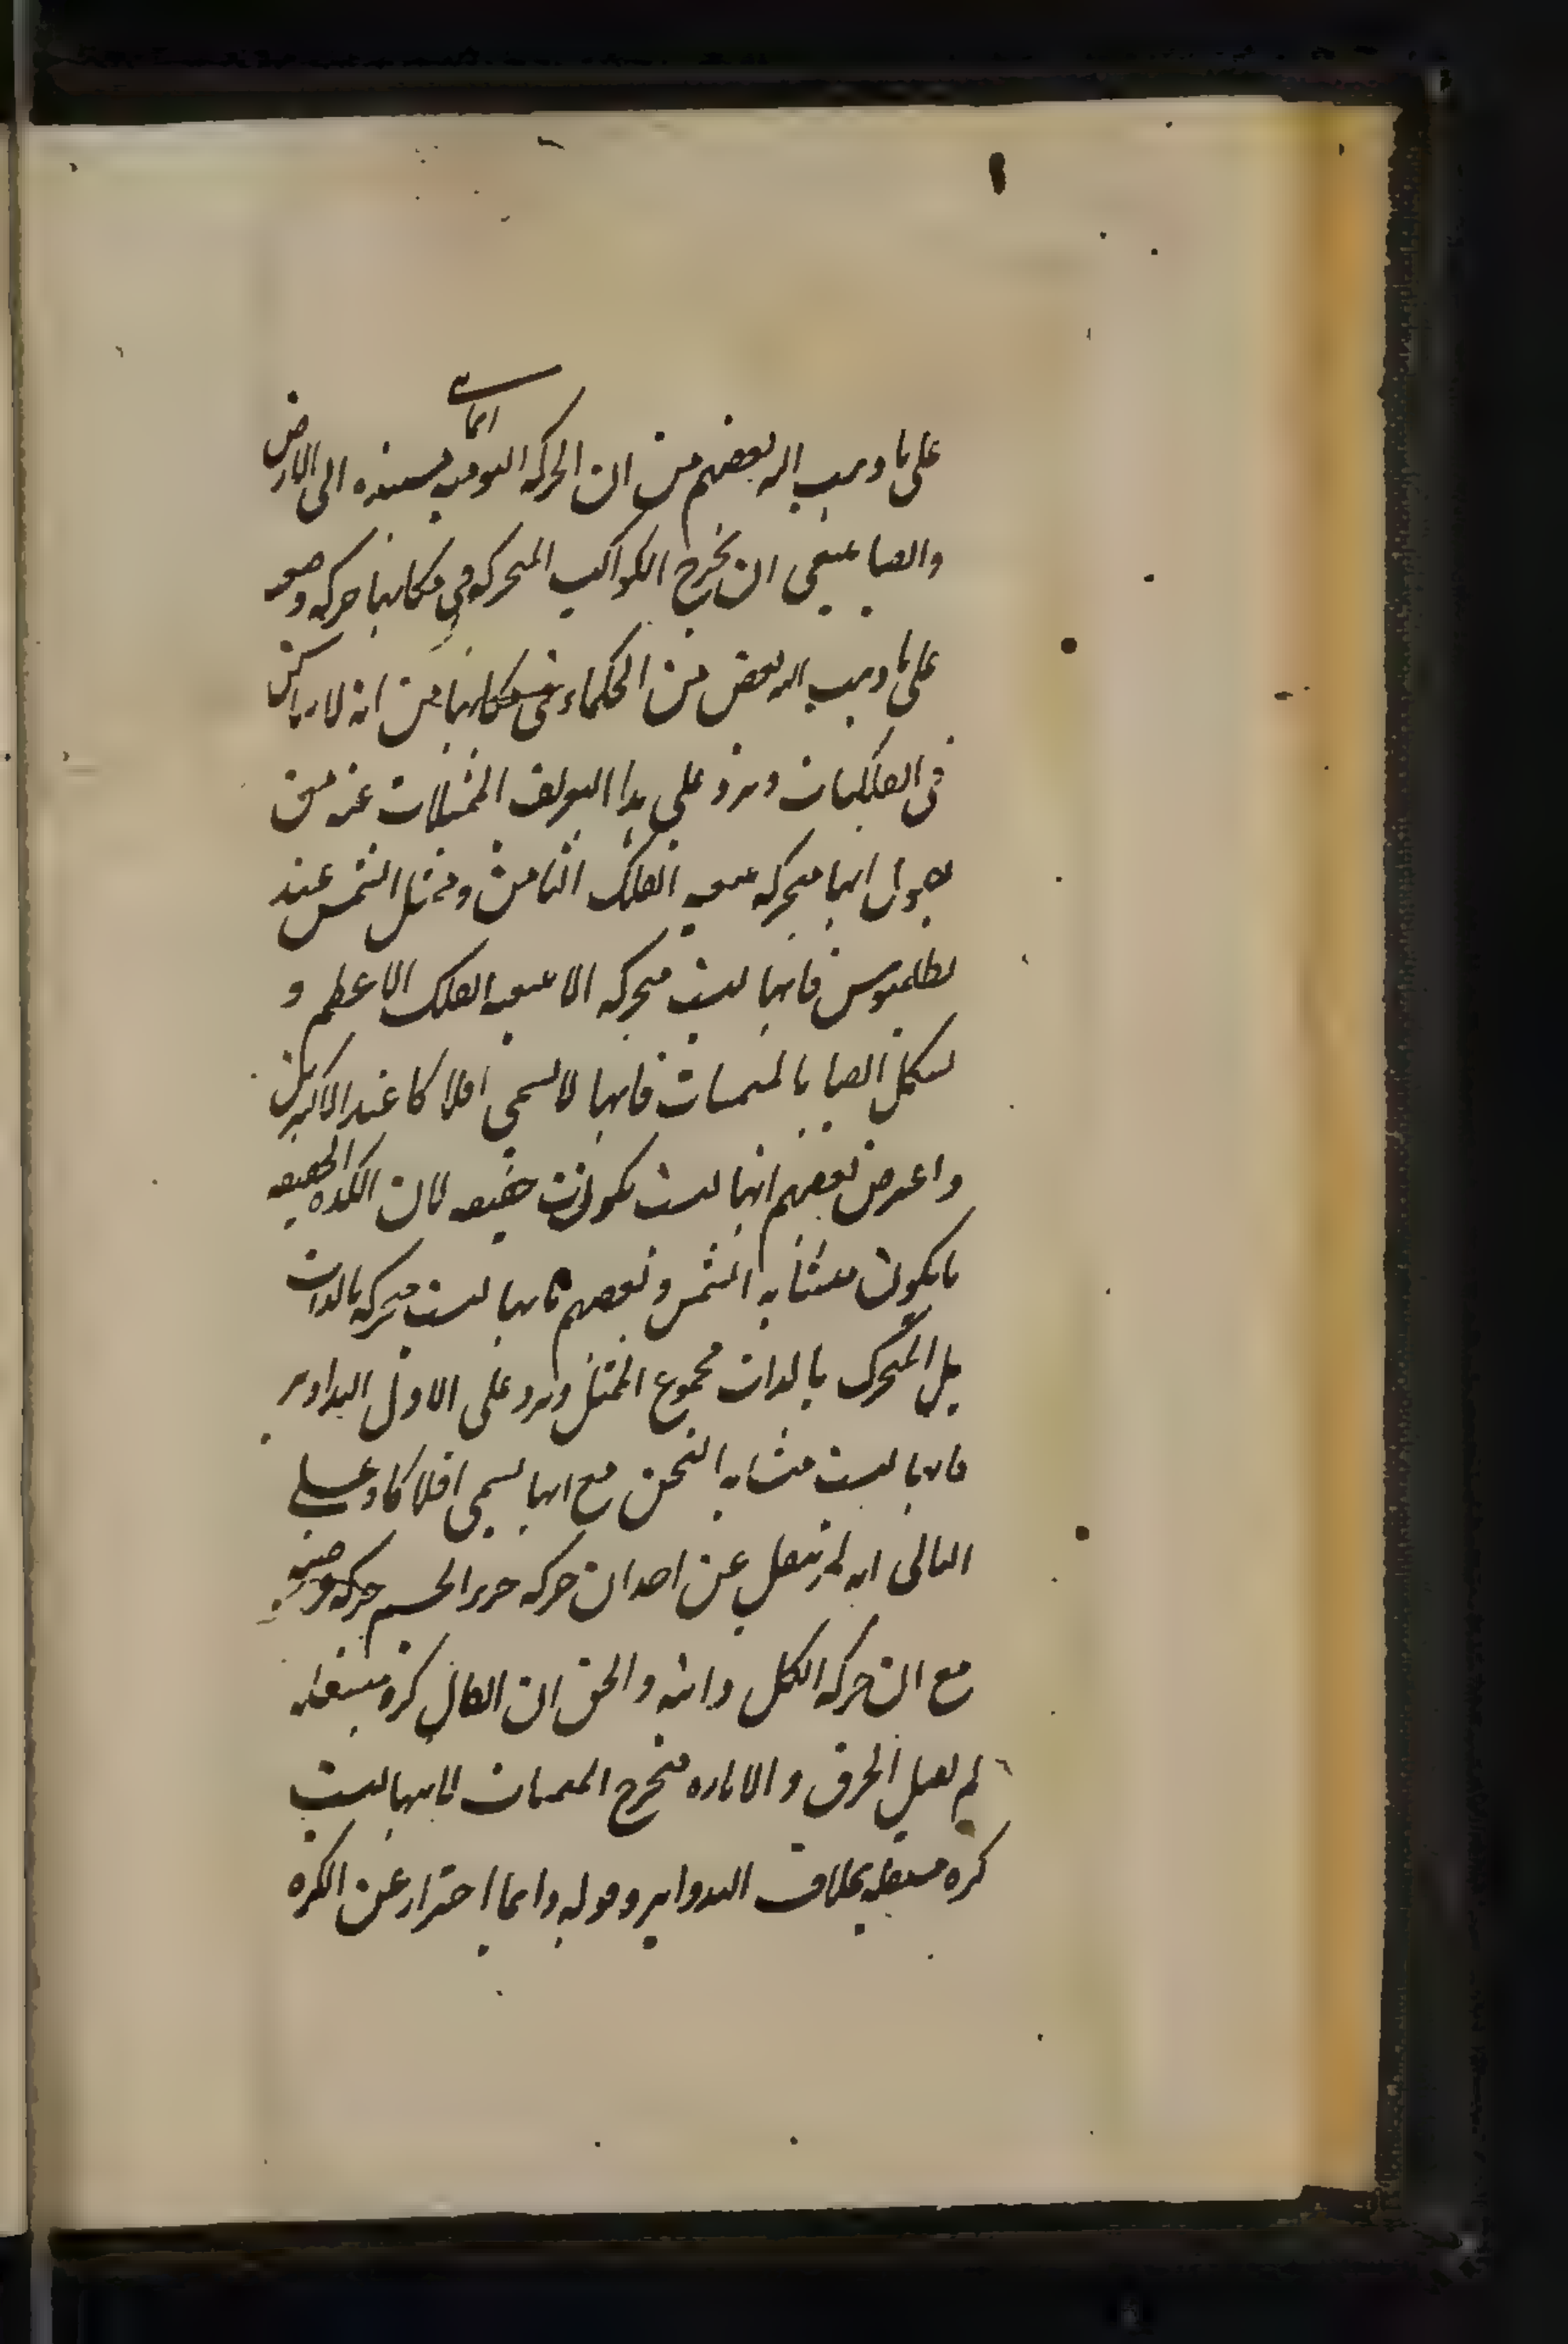 على ما ذهب اليه بعضهم من ان الحركة اليومية مستندة الى الارض
وايضا ينبغى ان يخرج الكواكب المتحركة فى مكانها حركة وضعية
على ما ذهب اليه بعض من الحكماء فى مكانها من انه لا ساكن
فى الفلكيات ويرد على هذا التعريف الممثلات عند من
يقول انها متحركة بتبعية الفلك الثامن وممثل الشمس عند
بطلميوس فانها ليست متحركة الا بتبعية الفلك الاعظم و
يشكل ايضا بالمتممات فانها لا تسمى افلاكا عند الاكثرين
واعترض بعضهم انها ليست بكرات حقيقية لان الكرة الحقيقية
ما يكون متشابه الثخن وبعضهم بانها ليست متحركة بالذات
بل المتحرك بالذات مجموع الممثل ويرد على الاول التداوير
فانها ليست متشابه الثخن مع انها تسمى افلاكا وعلى
الثانى انه لم ينقل عن احد ان حركة جزء الجسم حركة عرضية
مع ان حركة الكل ذاتية والحق ان يقال كرة مستقلة
لم يقبل الخرق والانارة فيخرج المتممات لانها ليست
كرة مستقلة بخلاف التدوايير وقوله دائما احتراز عن الكرة